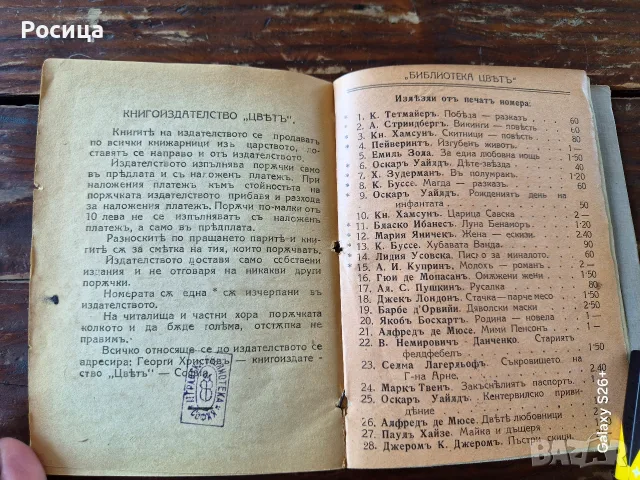 Росица
КНИГОИЗДАТЕЛСТВО „ЦВѢТЪ".
Книгитѣ на издателството се продаватъ
по всички книжарници изъ царството, до-
ставятъ се направо и отъ издателството.
Издателството изпълнява порѫчки само
въ прѣдплата и съ наложенъ платежъ. При
наложения платежъ към стойностьта на
порѫчката издателството прибавя и разхода
за наложения платежъ. Порѫчи по-малки отъ
10 лева не се изпълняватъ съ наложенъ
платежъ, а само въ прѣдплата.
Разноскитѣ по пращането паритѣ и кни-
гитѣ сѫ за смѣтка на тия, които порѫчватъ.
Издателството доставя само собствени
издания и не отговаря на никакви други
порѫчки.
Номерата съ една * сѫ изчерпани въ
издателството.
На читалища и частни хора порѫчката
колкото и да бѫде голѣма, отстѫпка не
правимъ.
Всичко относяще се до издателството се
адресира: Георги Христовъ — книгоиздате-
ство „Цвѣтъ" — София.
„БИБЛИОТЕКА ЦВѢТЪ"
Излѣзли отъ печатъ номера:
* 1. К. Тетмайеръ. Побѣда — разказъ 60
* 2. А. Стриндбергъ. Викинги — повѣсть 60
* 3. Кн. Хамсунъ. Скитници — повѣсть 60
* 4. Пейверинтъ. Изгубенъ животъ. 1·—
* 5. Емилъ Зола. За една любовна нощь 1·50
* 6. Оскаръ Уайлдъ. Дѣте-звѣзда 40
* 7. Х. Зудерманъ. Въ полумракъ. 1·20
* 8. К. Буссе. Магда — разказъ. 60
* 9. Оскаръ Уайлдъ. Рождениятъ день на
инфантата 60
* 10. Кн. Хамсунъ. Царица Савска 2·—
* 11. Бласко Ибанесъ. Луна Бенаморъ. 1·50
* 12. Мария Яничекъ. Жена — ескизи. 2·40
* 13. К. Буссе. Хубавата Ванда. 90
* 14. Лидия Усовска. Писмо за миналото. 60
* 15. А. И. Купринъ. Молохъ — романъ 2—
16. Гюи де Мопасанъ. Омѫжени жени 1·50
17. Ал. С. Пушкинъ. Русалка 80
18. Джекъ Лондонъ. Стачка — парче месо 1·50
19. Барбе д'Орвийи. Дяволски маски 1·50
20. Якобъ Босхартъ. Родина — новела 1—
21. Алфредъ де Мюсе. Мими Пенсонъ 1·50
22. В. Немировичъ Данченко. Стариятъ
фелдфебелъ 1·50
23. Селма Лагерльофъ. Съкровището на
Г-на Арне. 2·40
24. Маркъ Твенъ. Закъснѣлиятъ паспортъ.
25. Оскаръ Уайлдъ. Кентервилско приви-
дѣние
26. Алфредъ де Мюсе. Двѣтѣ любовници
27. Паулъ Хайзе. Майка и дъщеря
28. Джеромъ К. Джеромъ. Пъстри скици.
Galaxy S26
BAZAR